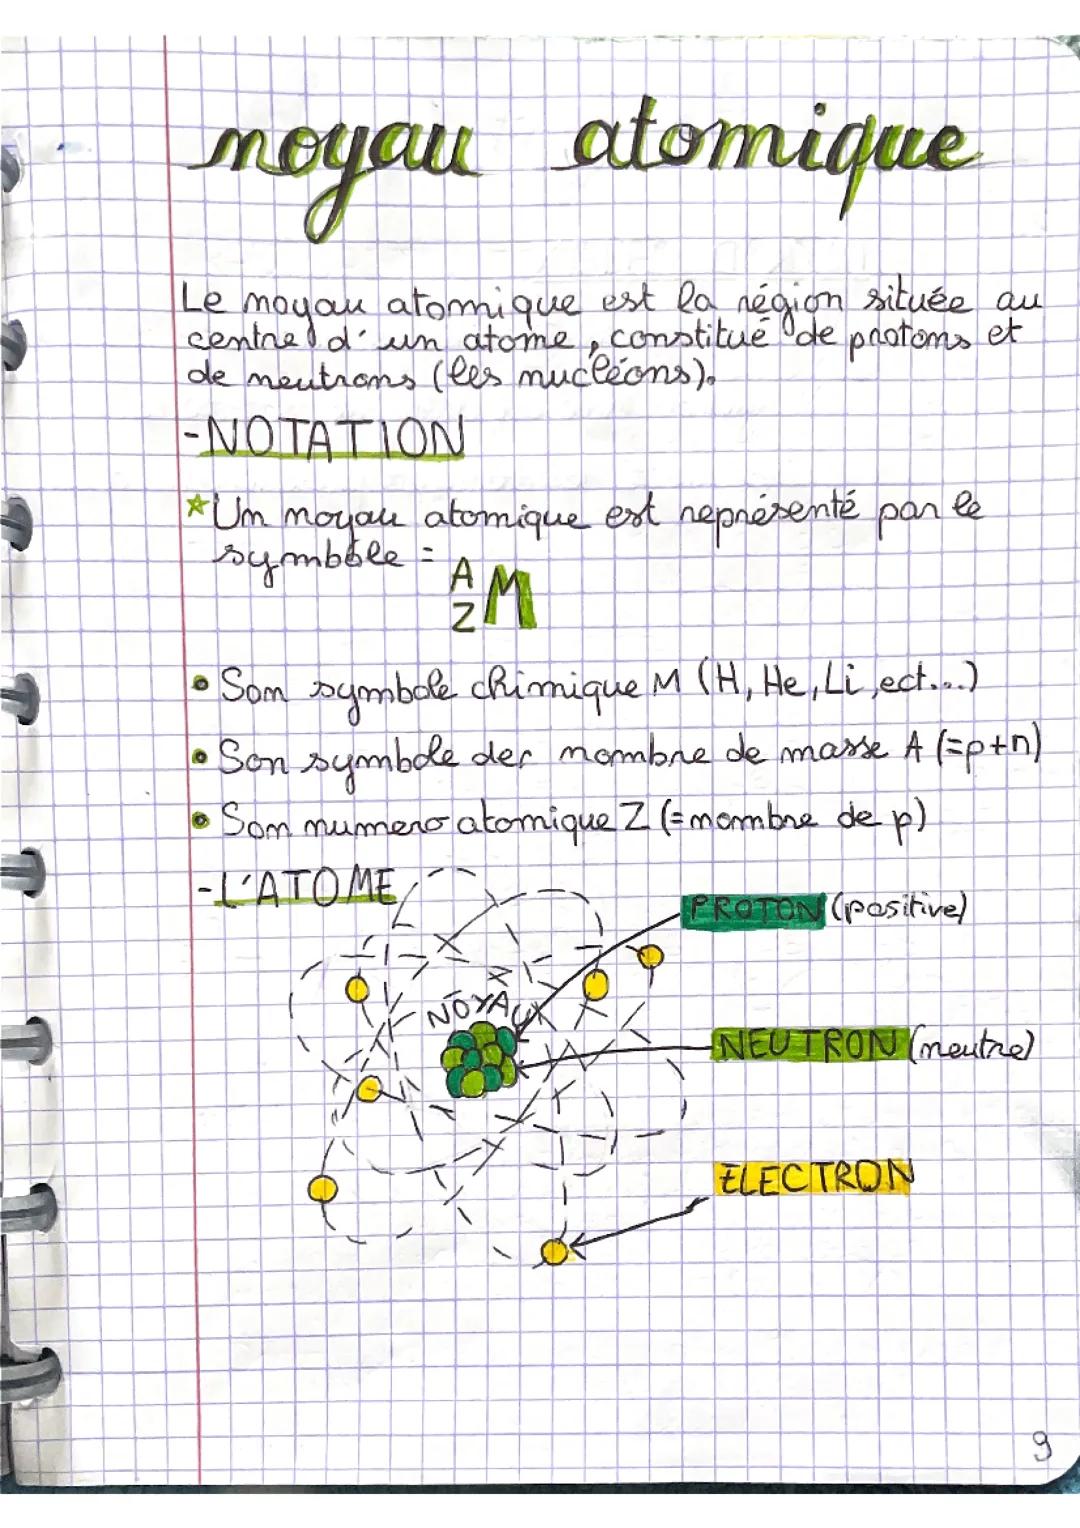 noyau atomique
Le noyau atomique est la région située au
centre d'un atome, constitué de protons et
de neutrons (les nucléons).
-NOTATION
☆Un noyau atomique est représenté par le
symbole =
A
Z M
• Son symbole chimique M (H, He, Li, ect...)
• Son symbole der nombre de masse A (=p+n)
• Son numero atomique Z (=nombre de p)
-L'ATOME
PROTON (positive)
NOYAU
NEUTRON (neutre)
ELECTRON
9